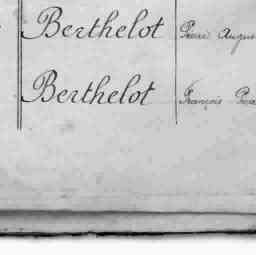 Berthelot Pierre Augus
Berthelot François